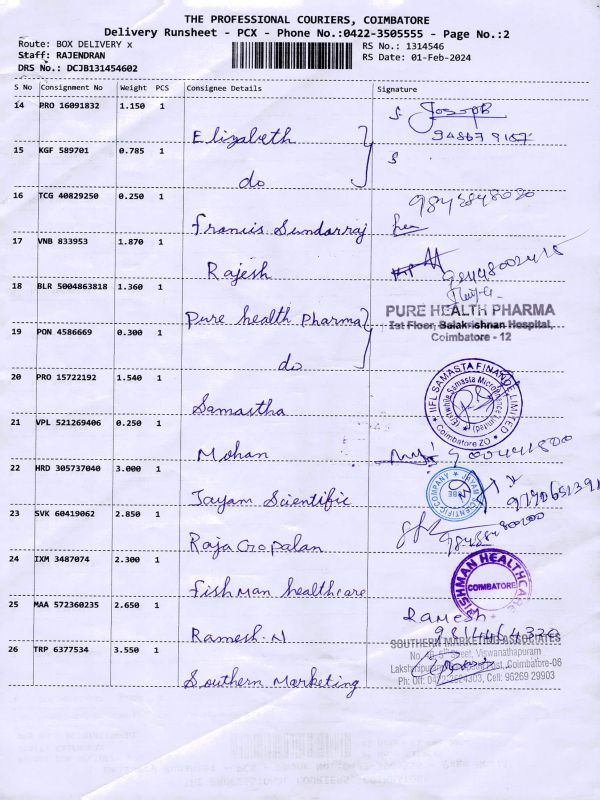 THE PROFESSIONAL COURIERS, COIMBATORE
Delivery Runsheet - PCX - Phone No.:0422-3505555 - Page No.:2
Route: BOX DELIVERY x RS No.: 1314546
Staff: RAJENDRAN RS Date: 01-Feb-2024
DRS No.: DCJB131454602
S No Consignment No Weight PCS Consignee Details Signature
14 PRO 16091832 1.150 1 Elizabeth Joseph
15 KGF 589701 0.785 1 do
16 TCG 40829250 0.250 1 Francis Sundarraj
17 VNB 833953 1.870 1 Rajesh
18 BLR 5004863818 1.360 1 Pure health Pharma
PURE HEALTH PHARMA
Ist Floor, Balakrishnan Hospital,
Coimbatore - 12
19 PON 4586669 0.300 1 do
20 PRO 15722192 1.540 1 Samastha
IIFL SAMASTA FINANCE LIMITED
Coimbatore ZO
21 VPL 521269406 0.250 1 Mohan
22 HRD 305737040 3.000 1 Jayam Scientific
JAYAM SCIENTIFIC COMPANY
23 SVK 60419062 2.850 1 RajaGopalan
24 IXM 3487074 2.300 1 fishman healthcare
FISHMAN HEALTHCARE
COIMBATORE
25 MAA 572360235 2.650 1 Ramesh.N Ramesh
26 TRP 6377534 3.550 1 Southern Marketing
SOUTHERN MARKETING ASSOCIATES
Street, Viswanathapuram
Coimbatore-06
Ph: Off: Cell: 96269 29903